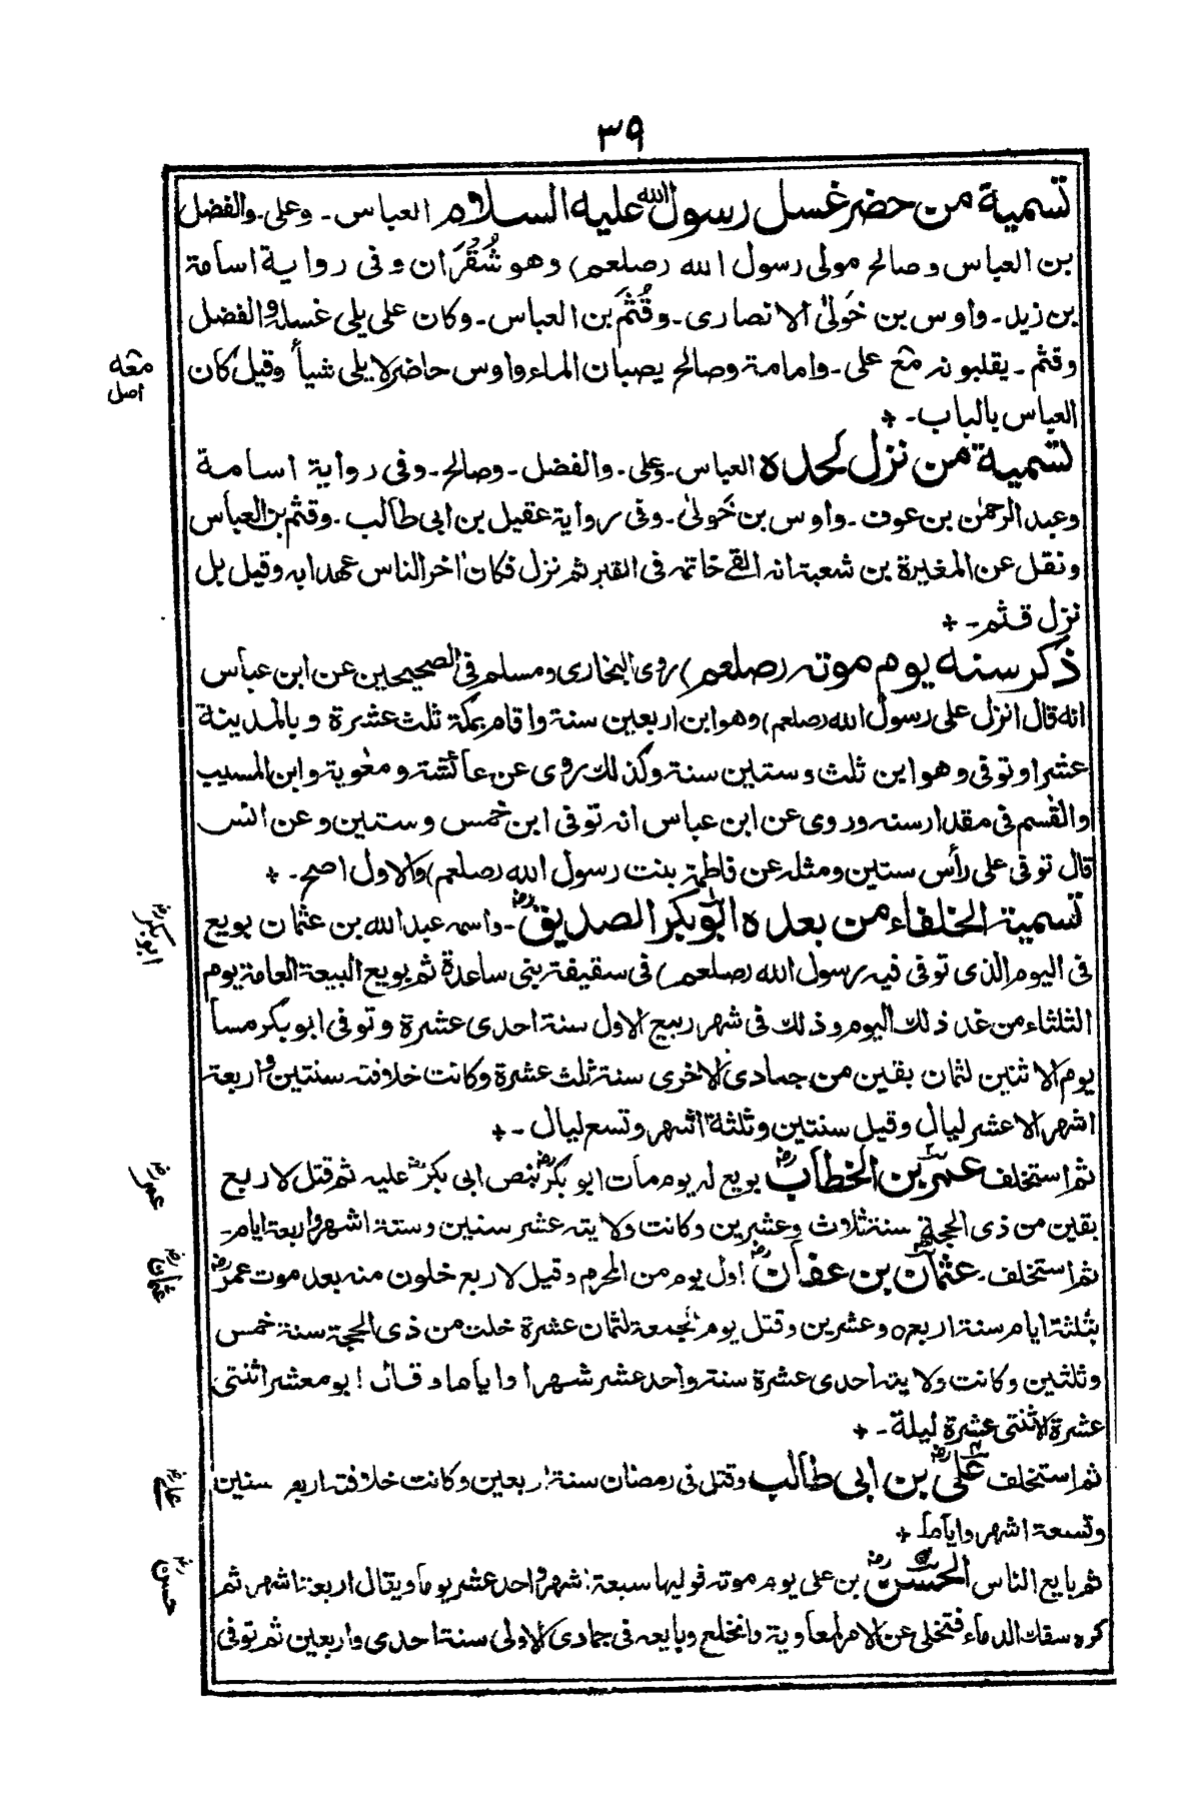 ٣٩
تسمية من حضر غسل رسول الله عليه السلام العباس۔ وعلی۔ والفضل
بن العباس وصالح مولی رسول الله (صلعم) وهو شُقُرَان وفی رواية اسامة
بن زيد۔ واوس بن خَولیٰ الانصاری۔ وقُثَم بن العباس۔ وكان علی يلی غسله والفضل
وقثم۔ يقلبونه مع علی۔ وامامة وصالح يصبان الماء واوس حاضر لايلی شيأ وقيل كان
معه
اصل
العباس بالباب۔
تسمية من نزل لحده العباس۔ وعلی۔ والفضل۔ وصالح۔ وفی رواية اسامة
وعبد الرحمٰن بن عوف۔ واوس بن خَولیٰ۔ وفی رواية عقيل بن ابی طالب۔ وقثم بن العباس
ونقل عن المغيرة بن شعبة انه القے خاتمه فی القبر ثم نزل فكان اٰخر الناس عهدا به وقيل بل
نزل قثم۔
ذكر سنه يوم موته (صلعم) روی البخاری ومسلم فی الصحيحين عن ابن عباس
انه قال انزل علی رسول الله (صلعم) وهو ابن اربعين سنة واقام بمكة ثلث عشرة وبالمدينة
عشرا وتوفی وهو ابن ثلث وستين سنة وكذلك روی عن عائشة ومعٰوية وابن المسيب
والقٰسم فی مقدار سنه وروی عن ابن عباس انه توفی ابن خمس وستين وعن انس
قال توفی علی رأس ستين ومثله عن فاطمة بنت رسول الله (صلعم) والاول اصح۔
تسمية الخلفاء من بعده ابوبكر الصديق رض۔ واسمه عبد الله بن عثمان بويع
ابوبكر رض
فی اليوم الذی توفی فيه رسول الله (صلعم) فی سقيفة بنی ساعدة ثم بويع البيعة العامة يوم
الثلثاء من غد ذلك اليوم وذلك فی شهر ربيع الاول سنة احدی عشرة وتوفی ابوبكر مسأ
يوم الاثنين لثمان بقين من جمادی الاخری سنة ثلث عشرة وكانت خلافته سنتين واربعة
اشهر الا عشر ليال وقيل سنتين وثلثة اشهر وتسع ليال۔
ثم استخلف عمر بن الخطاب رض بويع له يوم مات ابوبكر رض بنص ابی بكر رض عليه ثم قتل لاربع
عمر رض
بقين من ذی الحجة سنة ثلاث وعشرين وكانت ولايته عشر سنين وستة اشهر واربعة ايام۔
ثم استخلف۔ عثمان بن عفان رض اول يوم من المحرم وقيل لاربع خلون منه بعد موت عمر رض
عثمان رض
بثلثة ايام سنة اربعه وعشرين وقتل يوم الجمعة لثمان عشرة خلت من ذی الحجة سنة خمس
وثلثين وكانت ولايته احدی عشرة سنة واحد عشر شهرا واياما وقال ابو معشر اثنتی
عشرة الا ثنتی عشرة ليلة۔
ثم استخلف علی رض بن ابی طالب وقتل فی رمضان سنة اربعين وكانت خلافته اربع سنين
علی رض
وتسعة اشهر واياما۔
ثم بايع الناس الحسن رض بن علی يوم موته فوليها سبعة اشهر واحد عشر يوما ويقال اربعة اشهر ثم
حسن رض
كره سفك الدماء فتخلی عن الامر لمعاوية وانخلع وبايعه فی جمادی الاولی سنة احدی واربعين ثم توفی